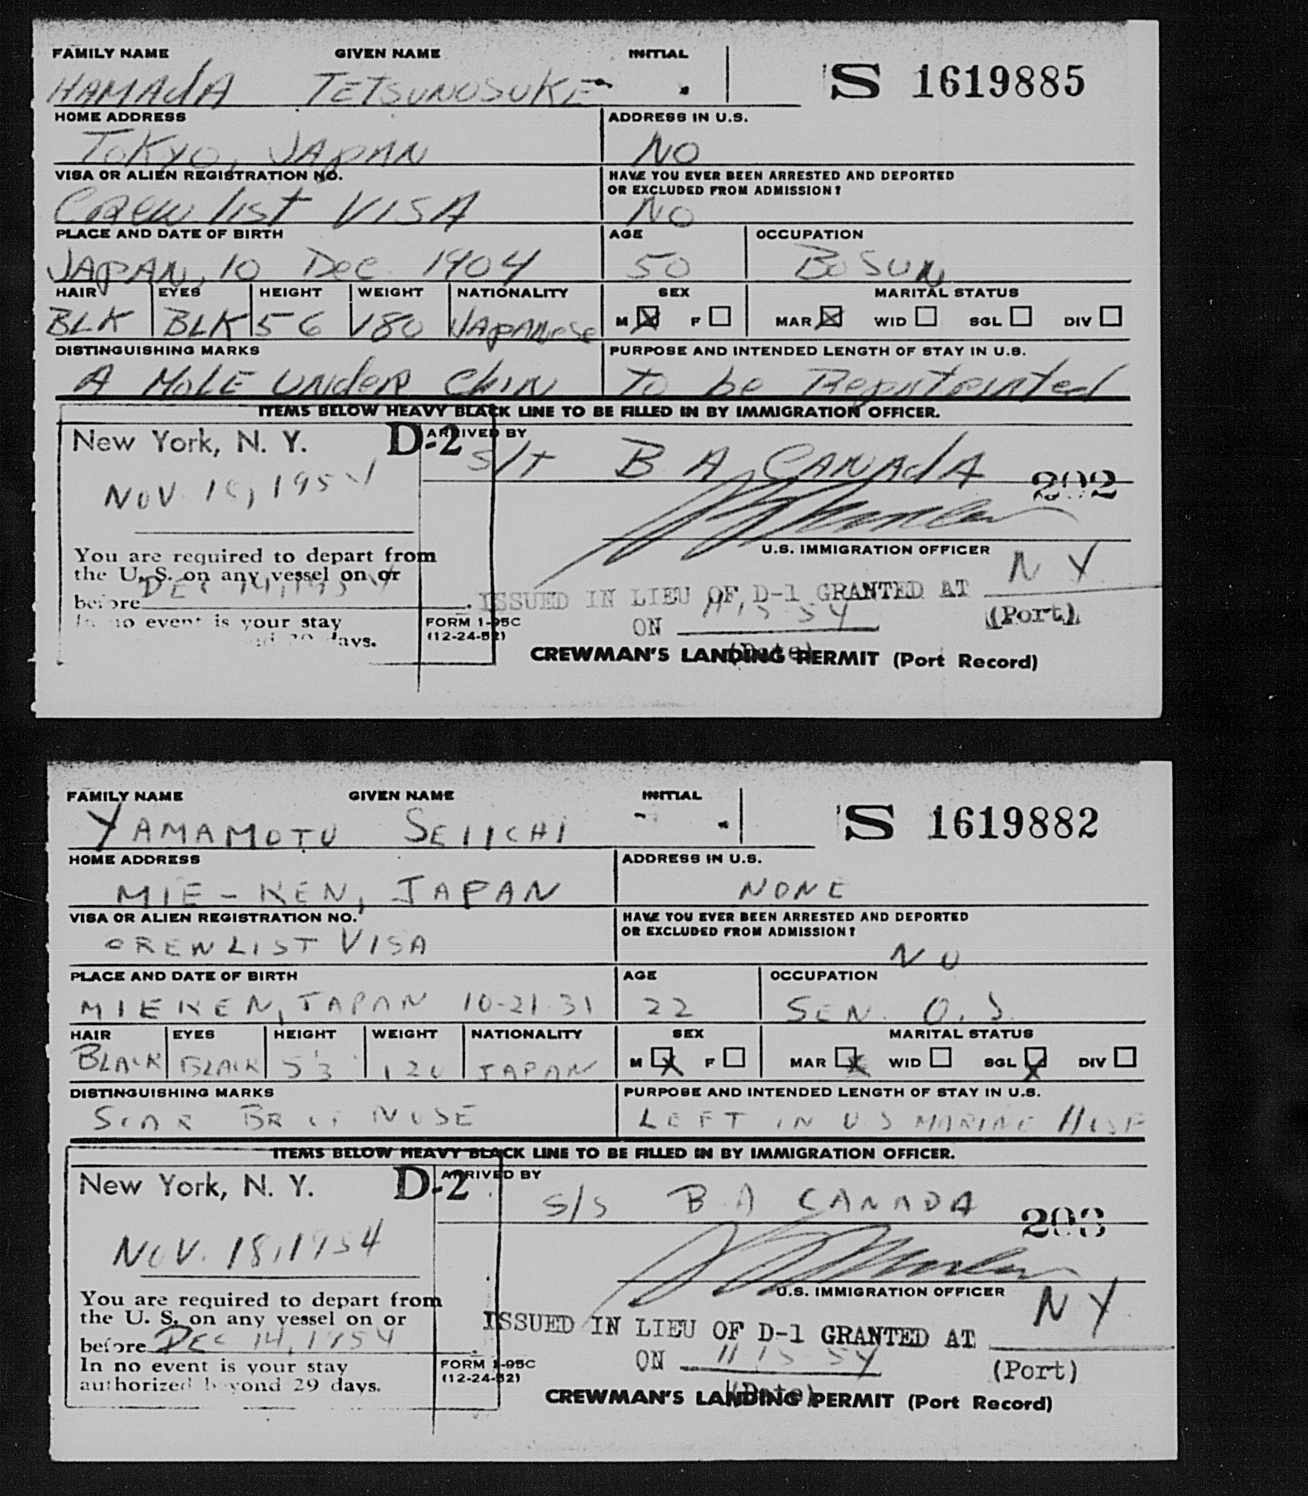 FAMILY NAME GIVEN NAME INITIAL
S 1619885
HAMAdA TETSUNOSUKE
HOME ADDRESS ADDRESS IN U.S.
TOKYO, JAPAN NO
VISA OR ALIEN REGISTRATION NO. HAVE YOU EVER BEEN ARRESTED AND DEPORTED
OR EXCLUDED FROM ADMISSION?
Crew list VISA NO
PLACE AND DATE OF BIRTH AGE OCCUPATION
JAPAN, 10 Dec 1904 50 BOSUN
HAIR EYES HEIGHT WEIGHT NATIONALITY SEX MARITAL STATUS
BLK BLK 5 6 180 JAPANese M F MAR WID SGL DIV
DISTINGUISHING MARKS PURPOSE AND INTENDED LENGTH OF STAY IN U.S.
A MOLE UNdeR ChIN to be
ITEMS BELOW HEAVY BLACK LINE TO BE FILLED IN BY IMMIGRATION OFFICER.
New York, N. Y. D-2 ARRIVED BY
S/T B A CANAdA
NOV 1954
202
U.S. IMMIGRATION OFFICER
You are required to depart from
the U. S. on any vessel on or
before DEC 14, 1954
In no event is your stay
days.
ISSUED IN LIEU OF D-1 GRANTED AT N Y
(Port)
ON 11, 54
(Date)
FORM I-95C
(12-24-52)
CREWMAN'S LANDING PERMIT (Port Record)
FAMILY NAME GIVEN NAME INITIAL
S 1619882
YAMAMOTO SEIICHI
HOME ADDRESS ADDRESS IN U.S.
MIE-KEN, JAPAN NONE
VISA OR ALIEN REGISTRATION NO. HAVE YOU EVER BEEN ARRESTED AND DEPORTED
OR EXCLUDED FROM ADMISSION?
CREWLIST VISA NO
PLACE AND DATE OF BIRTH AGE OCCUPATION
MIEKEN, JAPAN 10-21-31 22 SEN. O.S.
HAIR EYES HEIGHT WEIGHT NATIONALITY SEX MARITAL STATUS
BLACK BLACK 5'3 120 JAPAN M F MAR WID SGL DIV
DISTINGUISHING MARKS PURPOSE AND INTENDED LENGTH OF STAY IN U.S.
SCAR NOSE LEFT IN U S MARINE HOSP
ITEMS BELOW HEAVY BLACK LINE TO BE FILLED IN BY IMMIGRATION OFFICER.
New York, N. Y. D-2 ARRIVED BY
S/S B A CANADA
NOV. 18, 1954
203
U.S. IMMIGRATION OFFICER
You are required to depart from
the U. S. on any vessel on or
before DEC 14, 1954
In no event is your stay
authorized beyond 29 days.
ISSUED IN LIEU OF D-1 GRANTED AT N Y
(Port)
ON 11 15 54
(Date)
FORM I-95C
(12-24-52)
CREWMAN'S LANDING PERMIT (Port Record)